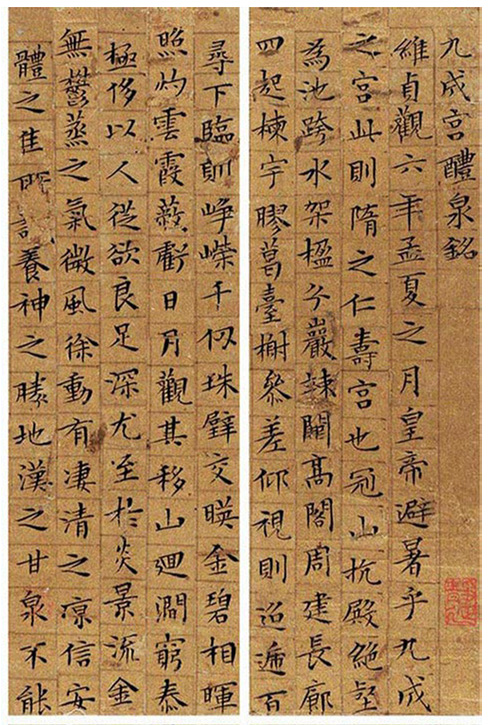 九成宮醴泉銘
維貞觀六年孟夏之月皇帝避暑乎九成
之宮此則隋之仁壽宮也冠山抗殿絕壑
為池跨水架楹分巖竦闕高閣周建長廊
四起棟宇膠葛臺榭參差仰視則迢遞百
尋下臨則崢嶸千仞珠璧交暎金碧相暉
照灼雲霞蔽虧日月觀其移山迴澗窮泰
極侈以人從欲良足深尤至於炎景流金
無鬱蒸之氣微風徐動有淒清之凉信安
體之佳所誠養神之勝地漢之甘泉不能